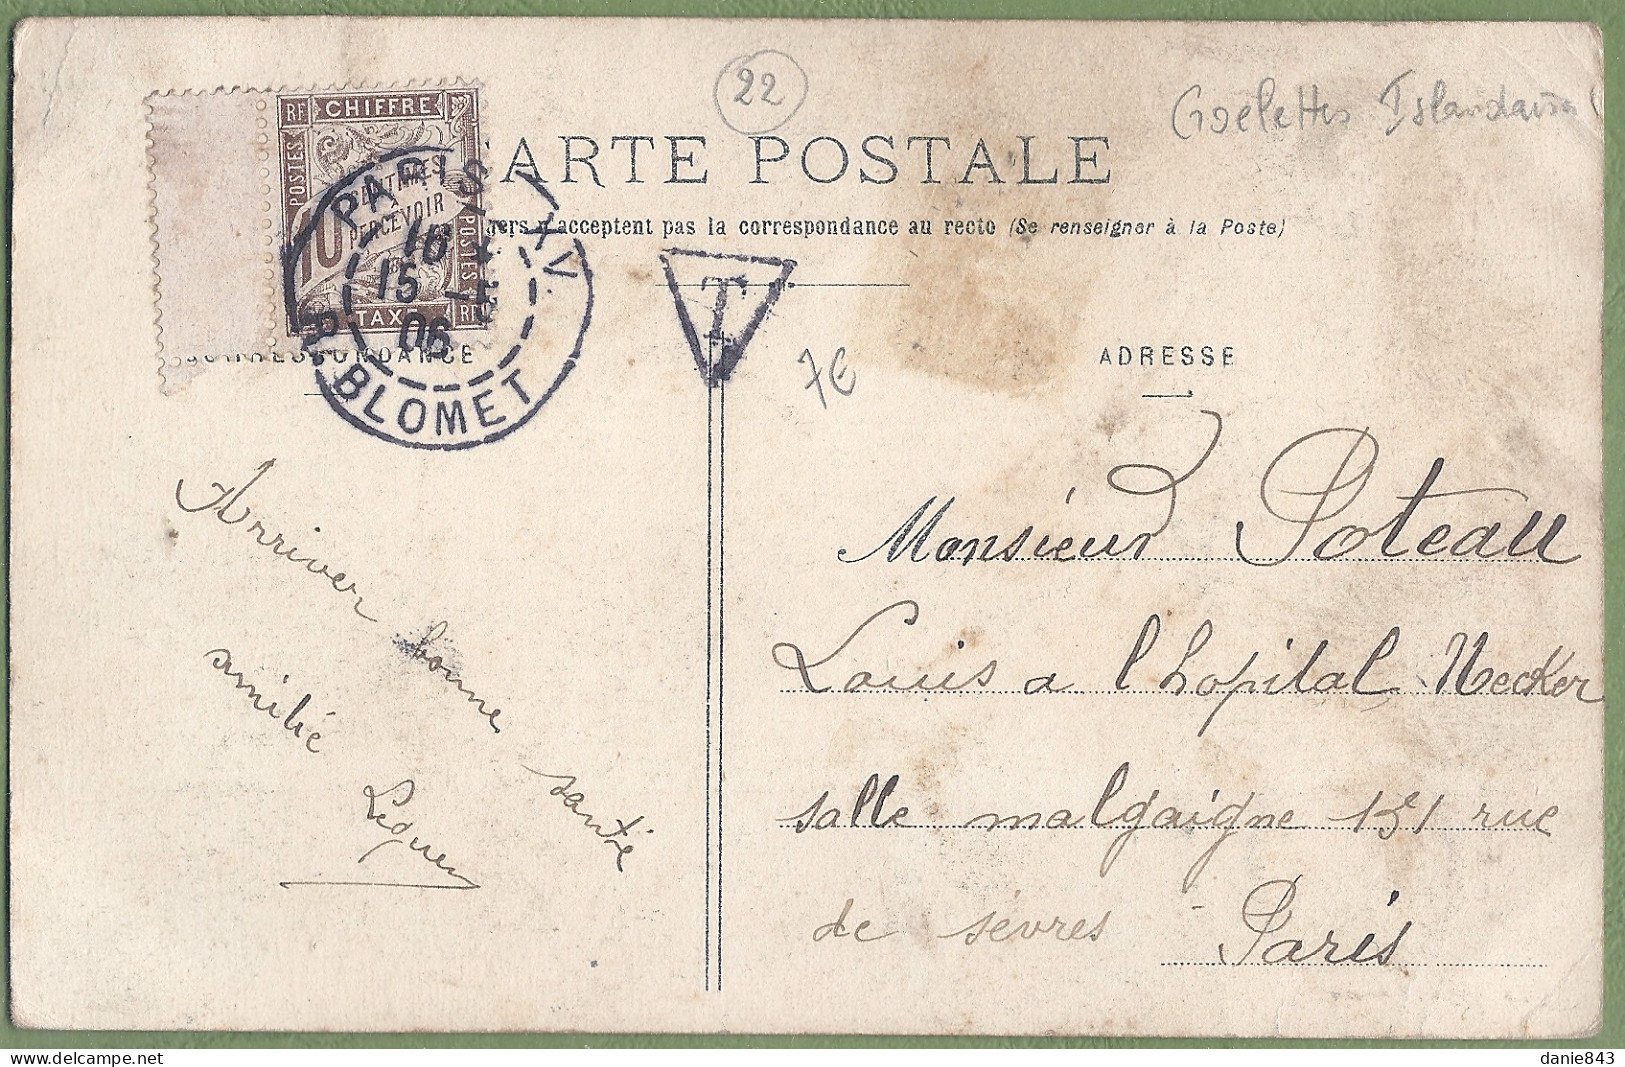 22
Goelettes Islandaises
CARTE POSTALE
gers n'acceptent pas la correspondance au recto (Se renseigner à la Poste)
RF CHIFFRE
POSTES
10 CENTIMES
A
PERCEVOIR
POSTES
TAXE RF
PARIS XV
16
15 -5
06
R. BLOMET
T
7€
CORRESPONDANCE
ADRESSE
Arriver bonne santé
amitié
Leguen
Monsieur Poteau
Louis a l hopital Necker
salle malgaigne 151 rue
de sèvres - Paris
danie843